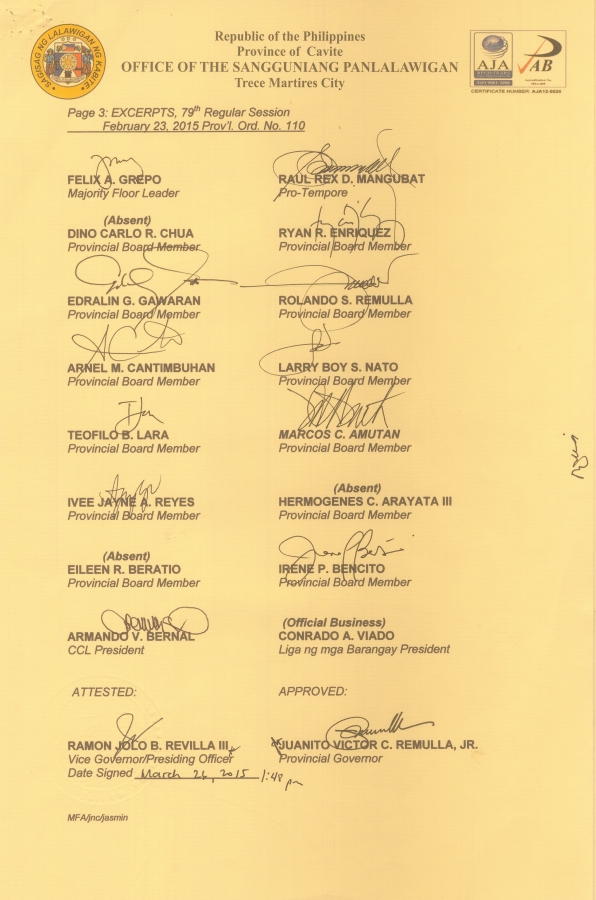 SAGISAG NG LALAWIGAN NG KABITE
Republic of the Philippines
Province of Cavite
OFFICE OF THE SANGGUNIANG PANLALAWIGAN
Trece Martires City
AJA
PAB
CERTIFICATE NUMBER: AJA12-0026
Page 3: EXCERPTS, 79th Regular Session
February 23, 2015 Prov'l. Ord. No. 110
FELIX A. GREPO
Majority Floor Leader
RAUL REX D. MANGUBAT
Pro-Tempore
(Absent)
DINO CARLO R. CHUA
Provincial Board Member
RYAN R. ENRIQUEZ
Provincial Board Member
EDRALIN G. GAWARAN
Provincial Board Member
ROLANDO S. REMULLA
Provincial Board Member
ARNEL M. CANTIMBUHAN
Provincial Board Member
LARRY BOY S. NATO
Provincial Board Member
TEOFILO B. LARA
Provincial Board Member
MARCOS C. AMUTAN
Provincial Board Member
IVEE JAYNE A. REYES
Provincial Board Member
(Absent)
HERMOGENES C. ARAYATA III
Provincial Board Member
(Absent)
EILEEN R. BERATIO
Provincial Board Member
IRENE P. BENCITO
Provincial Board Member
ARMANDO V. BERNAL
CCL President
(Official Business)
CONRADO A. VIADO
Liga ng mga Barangay President
ATTESTED:
APPROVED:
RAMON JOLO B. REVILLA III
Vice Governor/Presiding Officer
Date Signed March 26, 2015 1:48 pm
JUANITO VICTOR C. REMULLA, JR.
Provincial Governor
MFA/jnc/jasmin